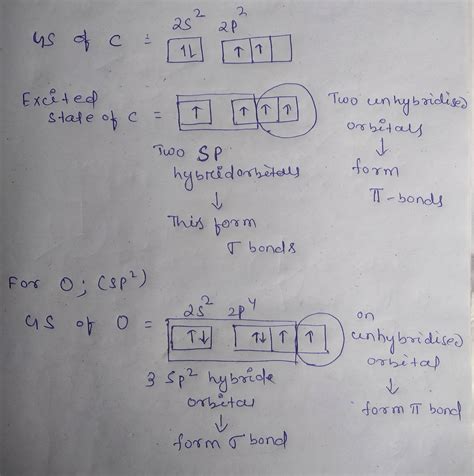 GS of C = 2s² 2p²
↑↓ ↑ ↑
Excited state of C = ↑ ↑ ↑ ↑
Two unhybridised orbitals
↓
form
π-bonds
Two SP
hybrid orbitals
↓
This form
σ bonds
For O; (SP²)
2s² 2p⁴
GS of O = ↑↓ ↑↓ ↑ ↑
on
unhybridised
orbital
↓
form π bond
3 Sp² hybride
orbital
↓
form σ bond